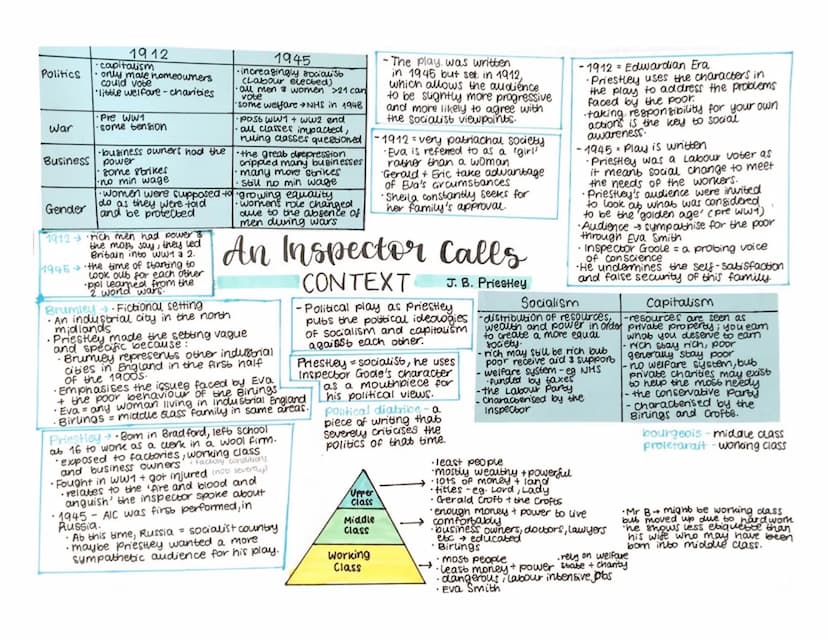 1912
1945
Politics
• capitalism
• only male homeowners
could vote
• little welfare - charities
• increasingly socialist
(Labour elected)
• all men & women >21 can
vote
• some welfare → NHS in 1948
War
• Pre WW1
• some tension
• post WW1 + WW2 end
• all classes impacted,
ruling classes questioned
Business
• business owners had the
power
• some strikes
• no min wage
• the great depression
crippled many businesses
• many more strikes
• still no min wage
Gender
• women were supposed to
do as they were told
and be protected
• growing equality
• women's role changed
due to the absence of
men during wars
- The play was written
in 1945 but set in 1912,
which allows the audience
to be slightly more progressive
and more likely to agree with
the socialist viewpoints.
- 1912 = very patriachal society
• Eva is referred to as a 'girl'
rather than a woman
• Gerald + Eric take advantage
of Eva's circumstances
• Sheila constantly seeks for
her family's approval.
- 1912 = Edwardian Era
• Priestley uses the characters in
the play to address the problems
faced by the poor.
• taking responsibility for your own
actions is the key to social
awareness.
- 1945 = Play is written
• Priestley was a Labour voter as
it means social change to meet
the needs of the workers.
• Priestley's audience were invited
to look at what was considered
to be the 'golden age' (pre WW1)
• Audience → sympathise for the poor
through Eva Smith
• Inspector Goole = a probing voice
of conscience
• He undermines the self-satisfaction
and false security of this family.
1912 → • rich men had power &
the most say, they led
Britain into WW1 & 2.
1945 → • the time of starting to
look out for each other
• ppl learned from the
2 world wars.
An Inspector Calls
CONTEXT
J. B. Priestley
Brumley → • Fictional setting
• An industrial city in the north
midlands
• Priestley made the setting vague
and specific because:
• Brumley represents other industrial
cities in England in the first half
of the 1900s.
• Emphasises the issues faced by Eva
+ the poor behaviour of the Birlings
• Eva = any woman living in industrial England
• Birlings = middle class family in same areas.
- Political play as Priestley
puts the political ideologies
of socialism and capitalism
against each other.
Priestley = socialist, he uses
Inspector Goole's character
as a mouthpiece for
his political views.
Political diatribe - a
piece of writing that
severely criticises the
politics of that time.
Socialism
- distribution of resources,
wealth and power in order
to create a more equal
society.
- rich may still be rich but
poor receive aid & support
- welfare system - eg NHS
• funded by taxes
- the Labour Party
- characterised by the
Inspector
Capitalism
- resources are seen as
private property; you earn
what you deserve to earn
- rich stay rich, poor
generally stay poor
- no welfare system, but
private charities may exist
to help the most needy
- the conservative Party
- characterised by the
Birlings and Crofts.
bourgeois - middle class
proletariat - working class
Priestley → • Born in Bradford, left school
at 16 to work as a clerk in a wool firm.
• exposed to factories, working class
and business owners • factory conditions
• Fought in WW1 + got injured (not severely)
• relates to the 'fire and blood and
anguish' the inspector spoke about
• 1945 - AIC was first performed, in
Russia.
• At this time, Russia = socialist country
• maybe Priestley wanted a more
sympathetic audience for his play.
Upper
Class
• least people
• mostly wealthy + powerful
• lots of money + land
• titles - eg. Lord, Lady
• Gerald Croft + the Crofts
Middle
Class
• enough money + power to live
comfortably
• business owners, doctors, lawyers
etc → educated
• Birlings
Working
Class
• most people
• least money + power
• dangerous, labour intensive jobs
• Eva Smith
• rely on welfare
state + charity
• Mr B → might be working class
but moved up due to hard work
he shows less etiquette than
his wife who may have been
born into middle class.